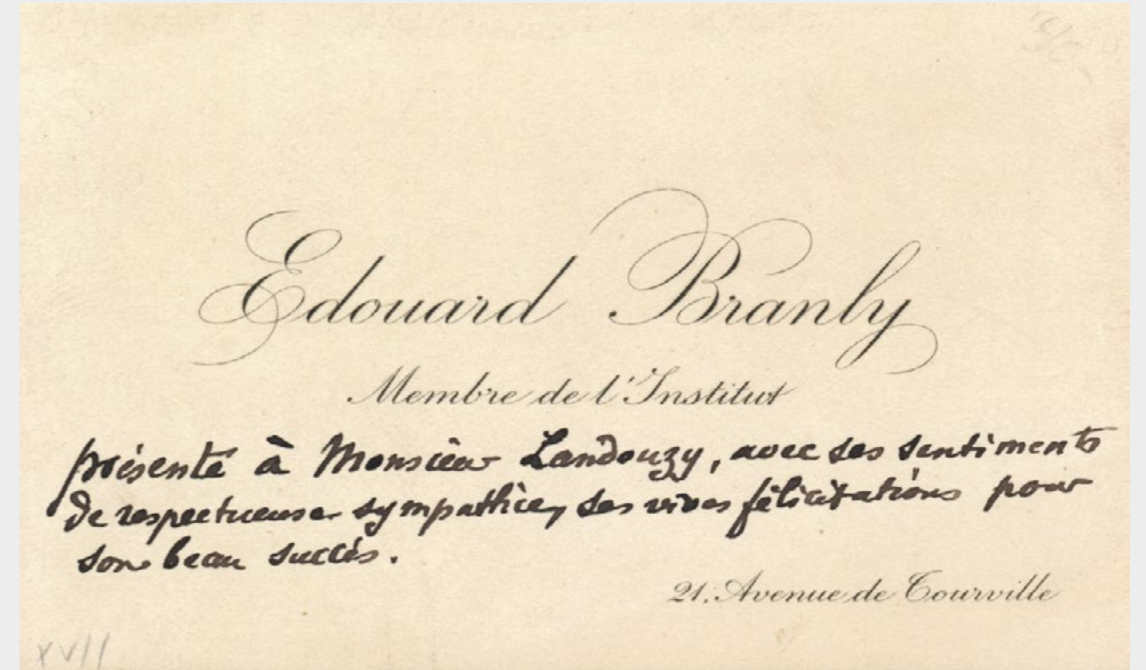 Edouard Branly
Membre de l'Institut
présente à Monsieur Landouzy, avec ses sentiments
de respectueuse sympathie, ses vives félicitations pour
son beau succès.
21. Avenue de Tourville
XVII